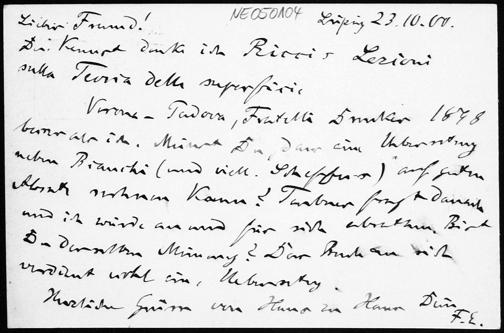 NE050104
Lieber Freund! Leipzig 23.10.00.
Du kennst denke ich Ricci's Lezioni
sulla Teoria delle superficie
Verona – Padova, Fratelli Drucker 1898
besser als ich. Meinst Du, dass eine Uebersetzung
neben Bianchi (und viell. Scheffers) auf guten
Absatz rechnen kann? Teubner fragt danach
und ich würde an und für sich abrathen. Bist
Du derselben Meinung? Das Buch an sich
verdient wohl eine Uebersetzung.
Herzliche Grüsse von Haus zu Haus Dein
F. E.